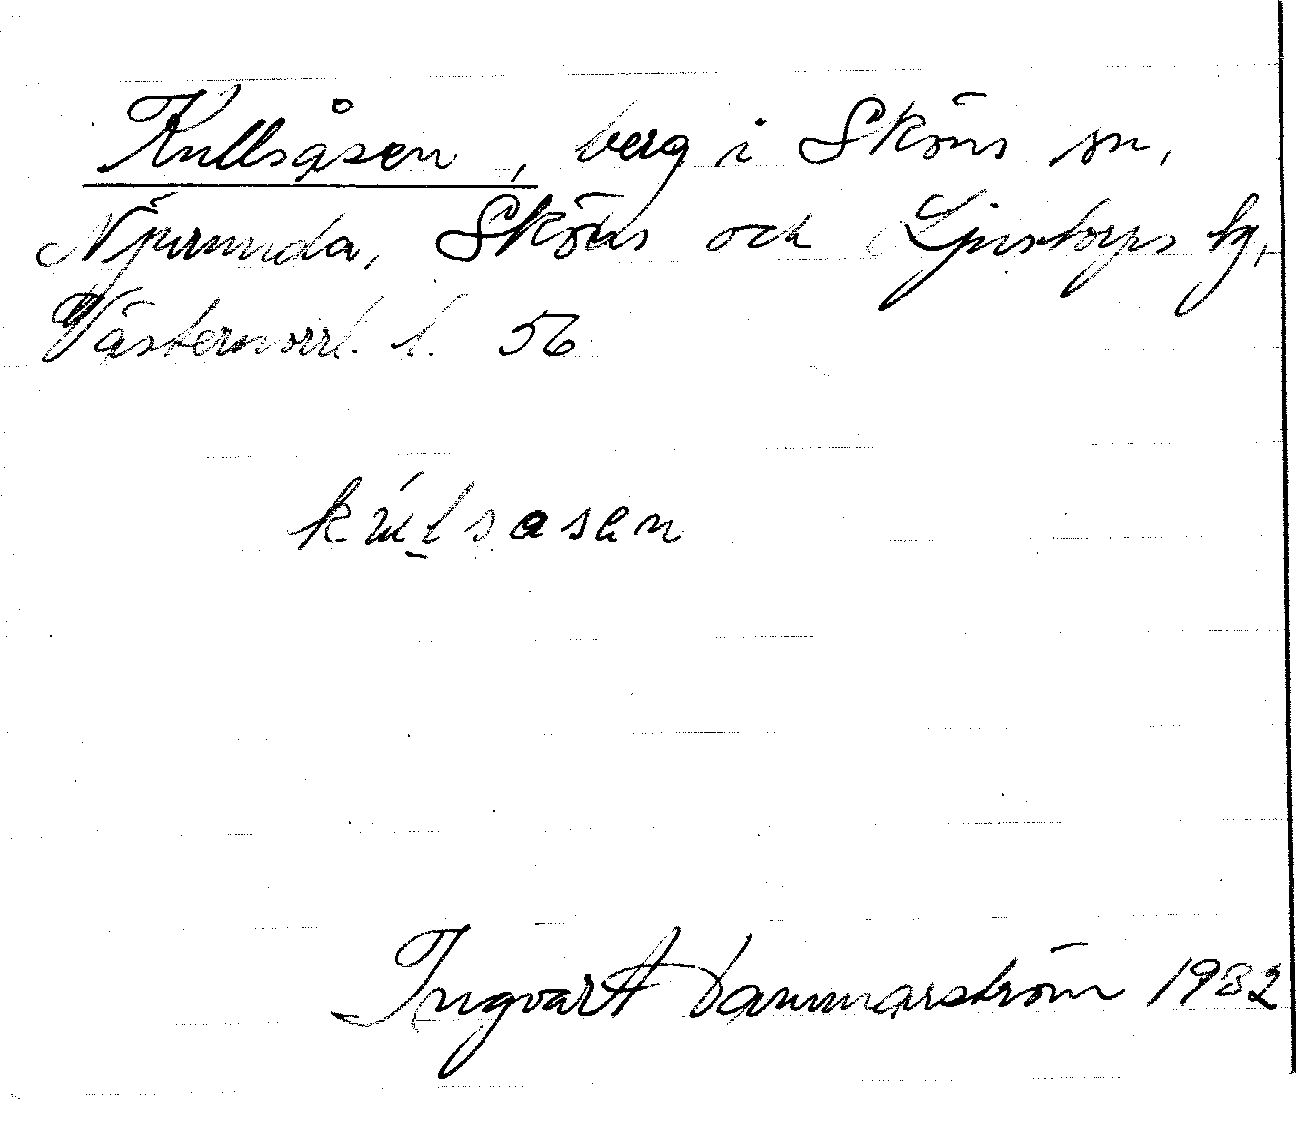 Kullsåsen, berg i Sköns sn,
Njurunda, Sköns och Ljustorps tg,
Västernorrl. l. 56
kúlsasen
Ingvar Hammarström 1982